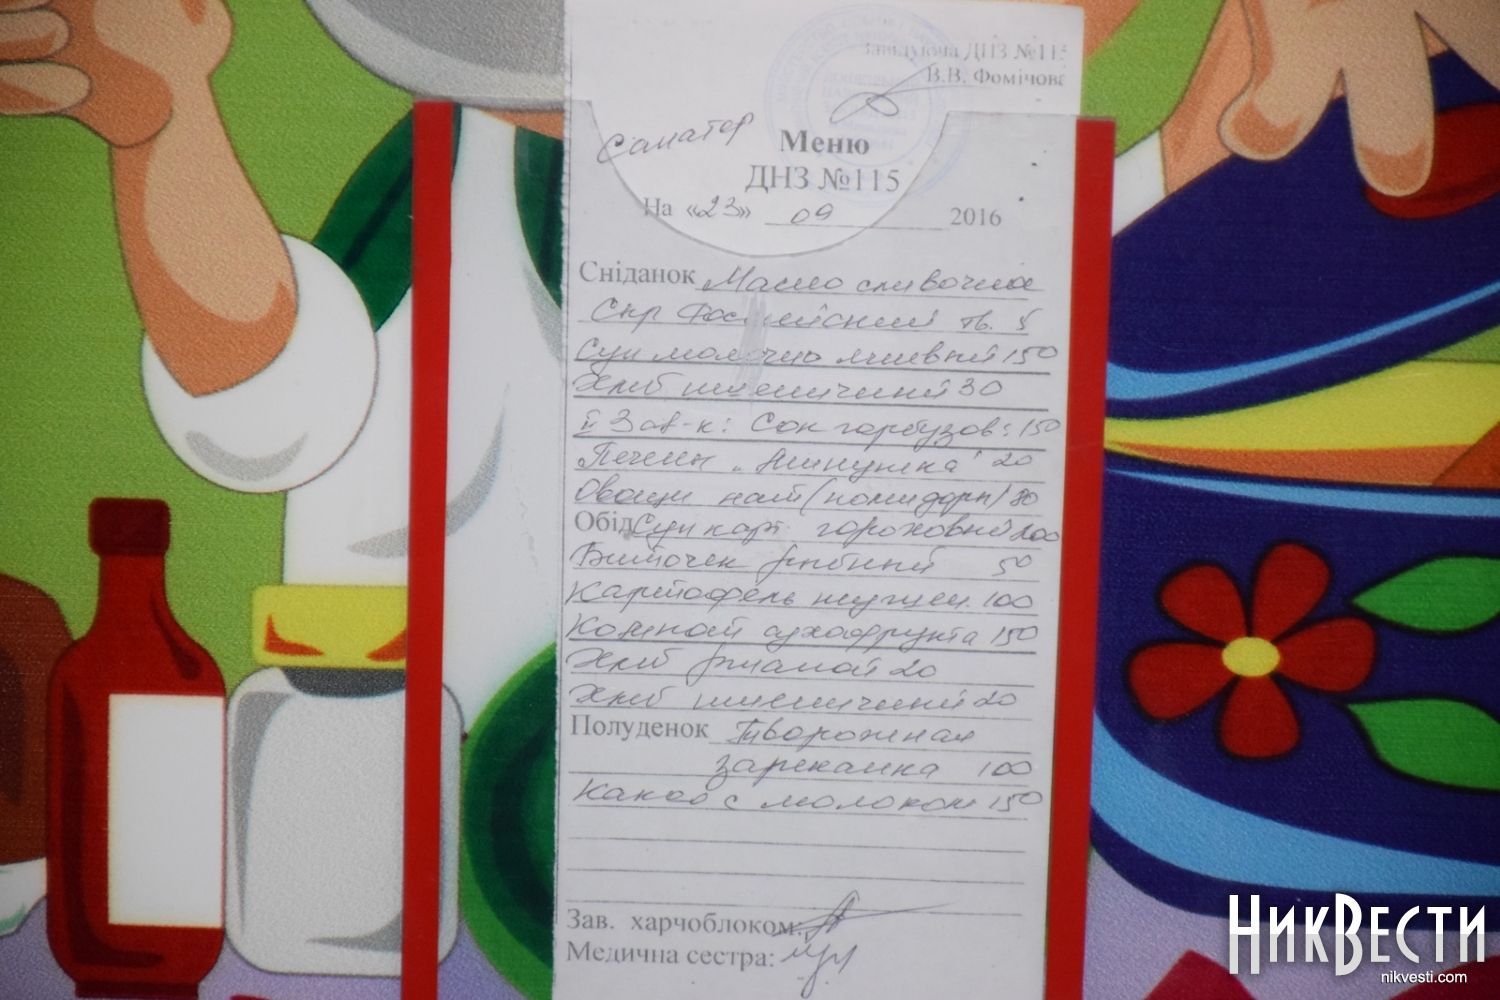 Завідуюча ДНЗ №115
В.В. Фомічова
Санатор
Меню
ДНЗ №115
На «23» 09 2016
Сніданок Масло сливочное
Сир тв. 5
Суп молочно 150
Хліб пшеничний 30
II Зав-к: Сок гарбузов: 150
Печень „Минутка" 20
Овощи нат (помидоры) 30
Обід Суп карт. гороховий 200
Биточек рыбный 50
Картофель тушен. 100
Компот сухофрукта 150
Хліб ржаной 20
Хліб пшеничний 20
Полуденок Творожная
запеканка 100
Какао с молоком 150
Зав. харчоблоком:
Медична сестра:
НикВести
nikvesti.com